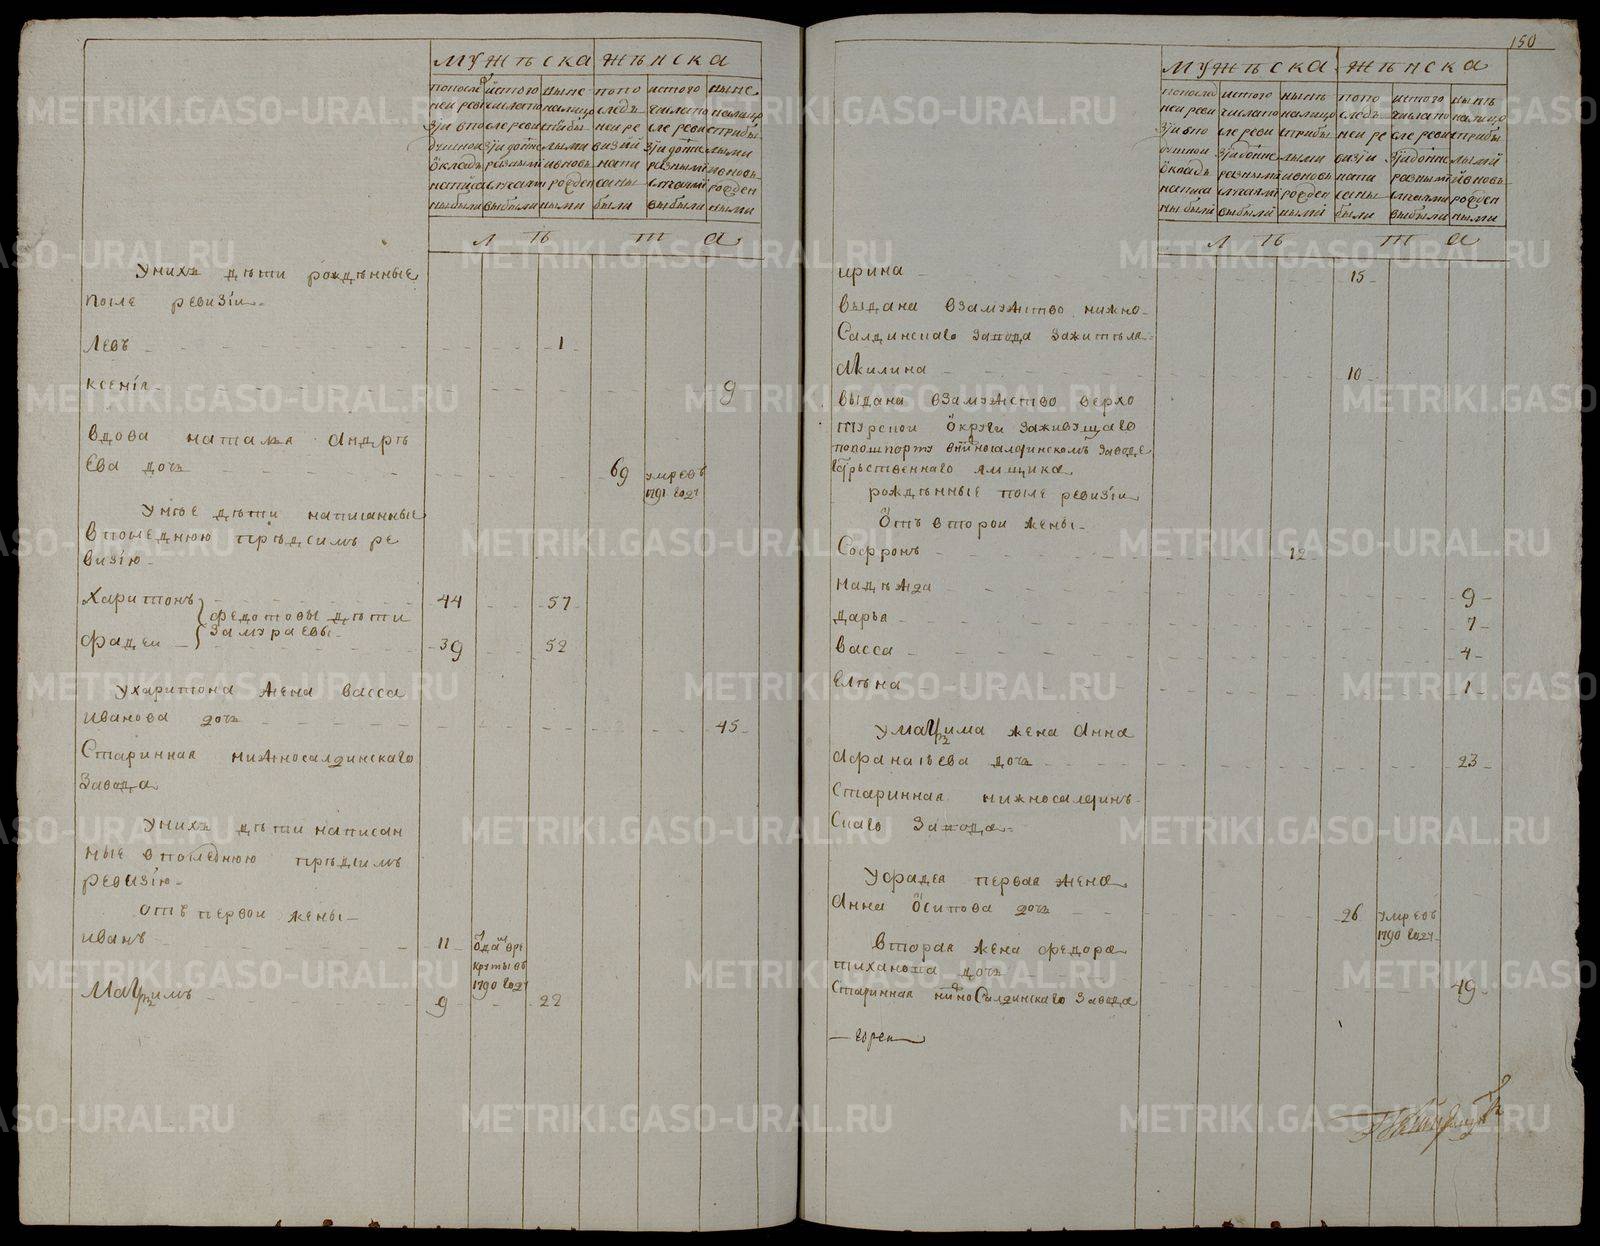 мужеска женска
попоследней ревизіи вподушной окладъ написаны были
истого числа после ревизіи до ныне разными случаями выбыли
ныне налицо сприбылыми и вновь рожденными
попоследней ревизіи написаны были
исего числа после ревизіи доныне разными случаями выбыли
ныне налицо сприбылыми и вновь рожденными
лѣта
Унихъ дѣти рожденные
после ревизіи
Левъ 1
ксенія 9
вдова наталья Андрѣ
Ева дочь 69 умре въ
1791 годѣ
Унее дѣти написанные
впоследнюю предсимъ ре
визію
Харитонъ 44 57
федотовы дѣти
замураевы
фадеи 39 52
ухаритона жена васса
иванова дочь 45
Старинная нижносалдинскаго
завода
Унихъ дѣти написан
ные впоследнюю предсимъ
ревизію
отъ первои жены
иванъ 11 Одан вре
круты въ
1790 годѣ
Мағимъ 9 22
150
мужеска женска
попоследней ревизіи вподушной окладъ написаны были
истого числа после ревизіи доныне разными случаями выбыли
нынѣ налицо сприбылыми и вновь рожденными
попоследней ревизіи написаны были
истого числа после ревизіи доныне разными случаями выбыли
нынѣ налицо сприбылыми и вновь рожденными
лѣта
ирина 15
выдана взамужство нижно
Салдинскаго завода зажителя
Акилина 10
выдана взамужство верхо
турской округи заживущаго
попошпорту внижносалдинскомъ заводе
ямщика
рожденные после ревизіи
отъ второи жены
Софронъ 12
надежда 9
дарья 7
васса 4
Елѣна 1
у жена Анна
Афанасьева дочь 23
Старинная нижносалдинъ
скаго завода
Уфадея первая жена
Анна Осипова дочь 26 умре въ
1790 годѣ
вторая жена федора
тиханова дочь 49
Старинная нижноСалдинскаго завода
METRIKI.GASO-URAL.RU